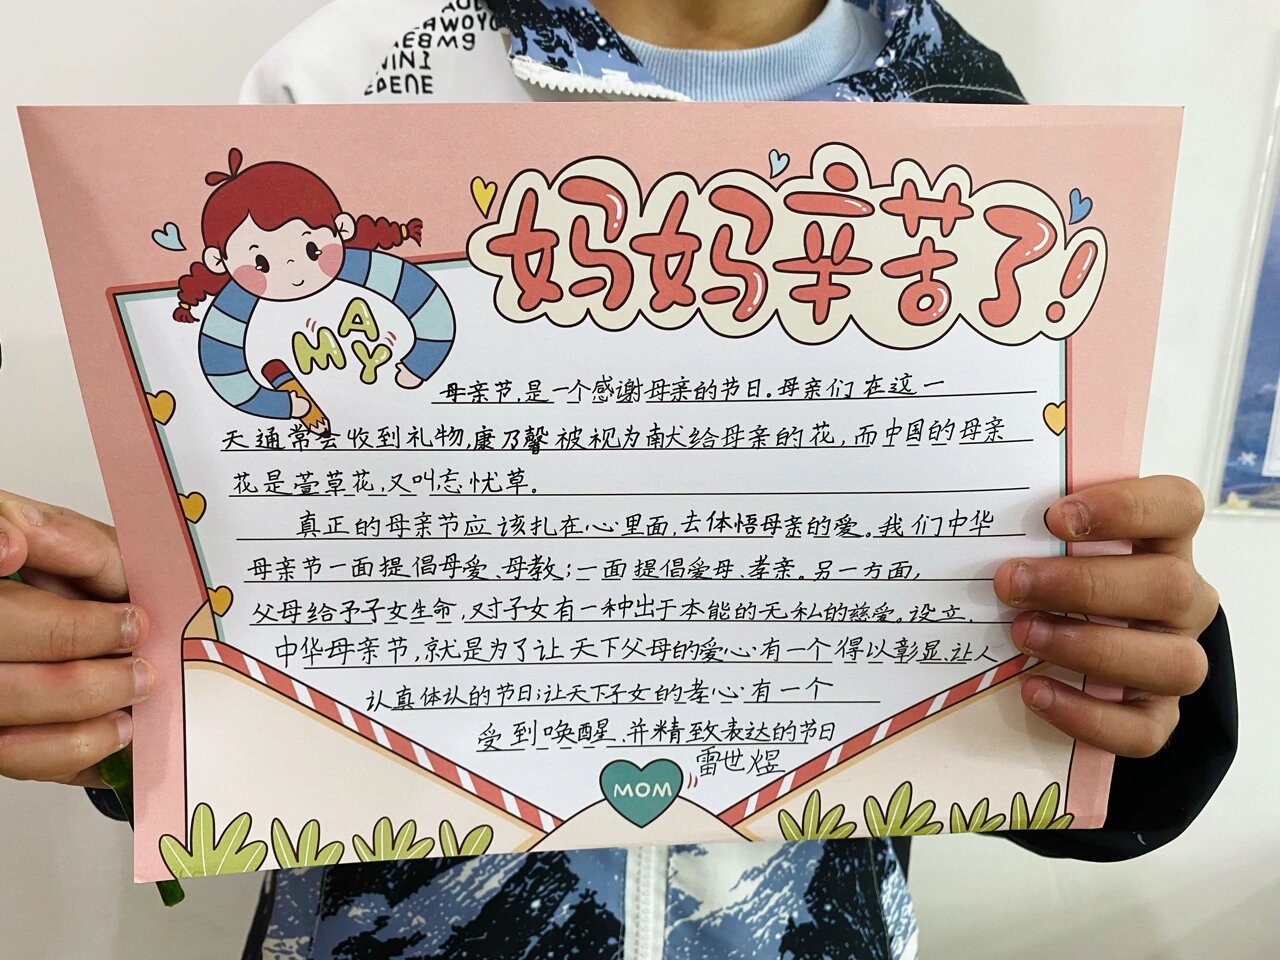 妈妈辛苦了!
MAY
母亲节,是一个感谢母亲的节日。母亲们在这一
天通常会收到礼物,康乃馨被视为献给母亲的花,而中国的母亲
花是萱草花,又叫忘忧草。
真正的母亲节应该扎在心里面,去体悟母亲的爱。我们中华
母亲节一面提倡母爱、母教;一面提倡爱母、孝亲。另一方面,
父母给予子女生命,对子女有一种出于本能的无私的慈爱。设立
中华母亲节,就是为了让天下父母的爱心有一个得以彰显、让人
认真体认的节日;让天下子女的孝心有一个
受到唤醒、并精致表达的节日
雷世煜
MOM